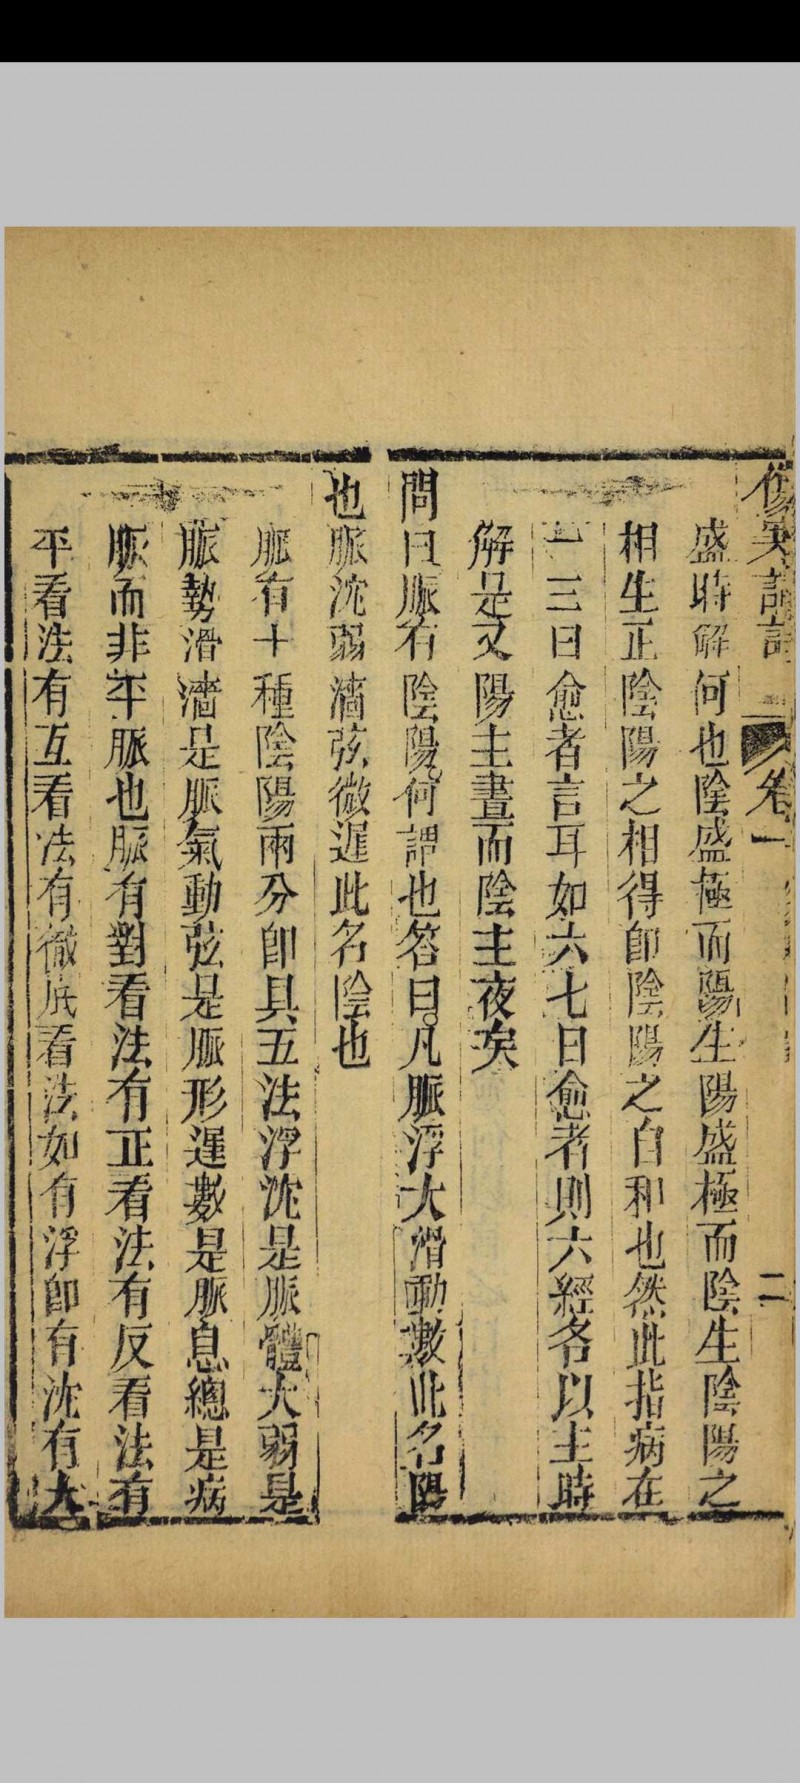 傷寒論註 卷一 二
盛時解何也陰盛極而陽生陽盛極而陰生陰陽之
相生正陰陽之相得卽陰陽之自和也然此指病在
一三曰愈者言耳如六七日愈者則六經各以主時
解是又陽主晝而陰主夜矣
問曰脈有陰陽何謂也答曰凡脈浮大滑動數此名陽
也脈沈弱濇弦微遲此名陰也
脈有十種陰陽兩分卽具五法浮沈是脈體大弱是
脈勢滑濇是脈氣動弦是脈形遲數是脈息總是病
脈而非平脈也脈有對看法有正看法有反看法有
平看法有互看法有徹底看法如有浮卽有沈有大